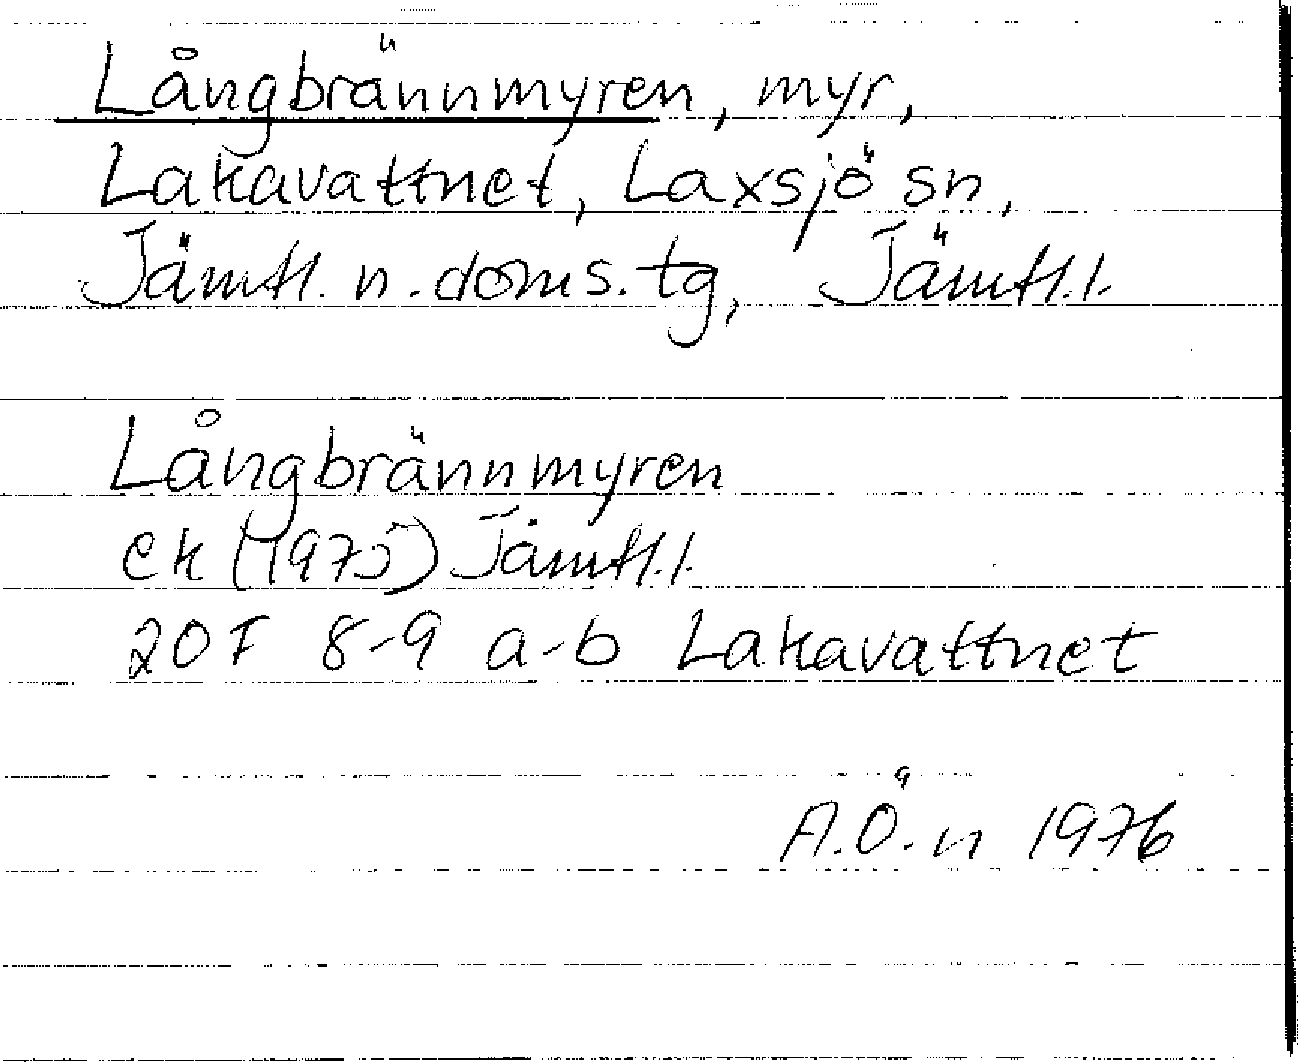 Långbrännmyren, myr,
Lakavattnet, Laxsjö sn,
Jämtl. n. doms. tg, Jämtl.l.
Långbrännmyren
ek (1975) Jämtl.l.
20 F 8-9 a-b Lakavattnet
A.Ö.n 1976